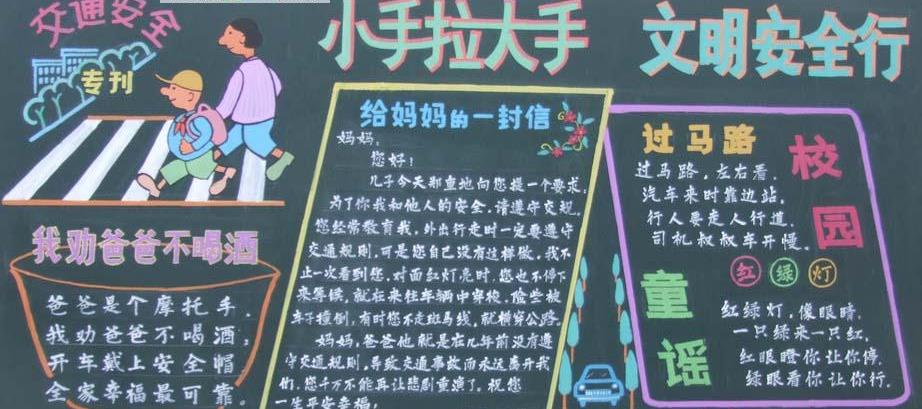 交通安全
专刊
小手拉大手
文明安全行
我劝爸爸不喝酒
爸爸是个摩托手,
我劝爸爸不喝酒,
开车戴上安全帽,
全家幸福最可靠。
给妈妈的一封信
妈妈:
您好!
儿子今天郑重地向您提一个要求,
为了你我和他人的安全,请遵守交规。
您经常教育我,外出行走时一定要遵守
交通规则,可是您自己没有这样做,我不
止一次看到您,对面红灯亮时,您也不停下
来等候,就在来往车辆中穿梭,险些被
车子撞倒,有时您不走斑马线,就横穿公路。
妈妈,爸爸他就是在几年前没有遵
守交通规则,导致交通事故而永远离开我
们,您千万不能再让悲剧重演了,祝您
一生平安幸福!
校园
童谣
过马路
过马路,左右看,
汽车来时靠边站,
行人要走人行道,
司机叔叔车开慢。
红绿灯
红绿灯,像眼睛,
一只绿来一只红,
红眼瞪你让你停,
绿眼看你让你行。